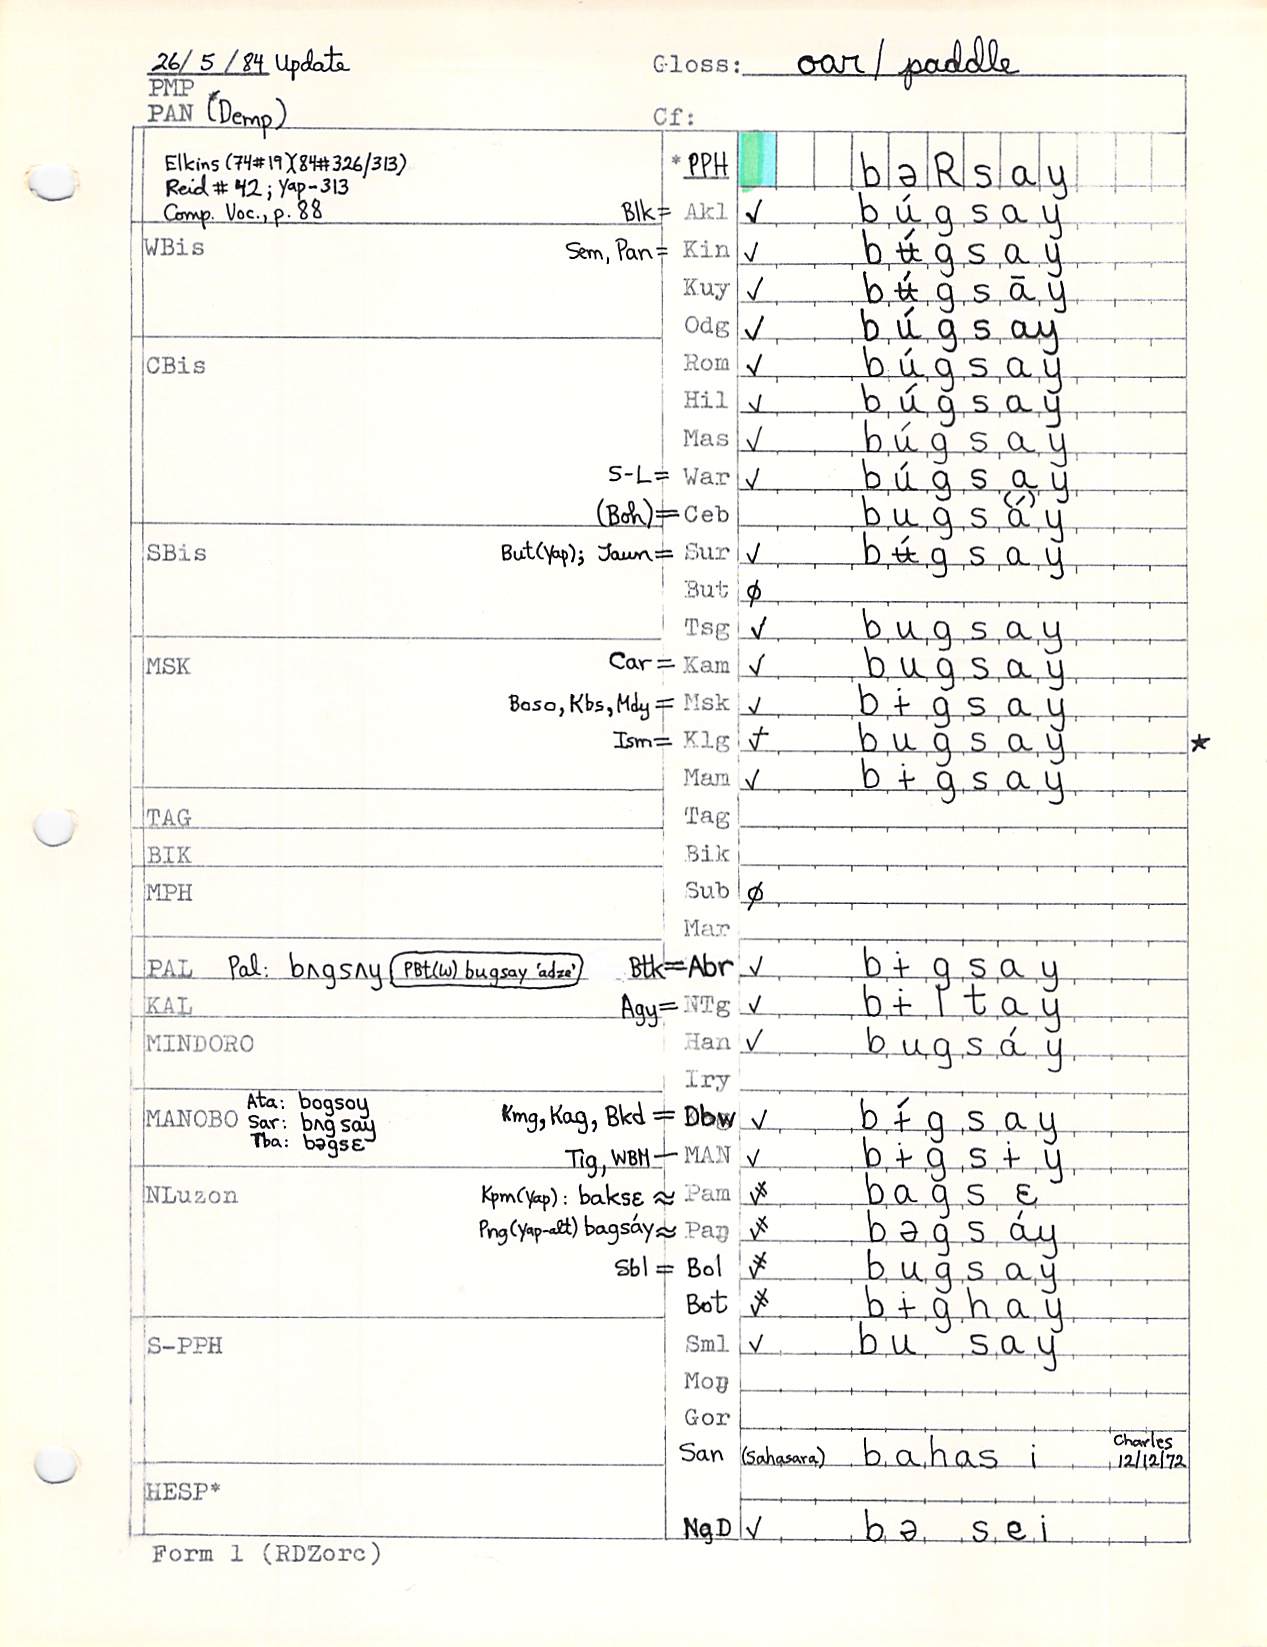 26/5/84 Update Gloss: oar/paddle
PMP
PAN (Demp) Cf:
Elkins (74#19)(84#326/313) *PPH bəRsay
Reid #42; Yap-313
Comp. Voc., p. 88 Blk= Akl ✓ búgsay
WBis Sem, Pan= Kin ✓ bʉ́gsay
Kuy ✓ bʉ́gsāy
Odg ✓ búgsay
CBis Rom ✓ búgsay
Hil ✓ búgsay
Mas ✓ búgsay
S-L= War ✓ búgsay
(Boh)= Ceb bugsa(́)y
SBis But(Yap); Jaun= Sur ✓ bʉ́gsay
But ∅
Tsg ✓ bugsay
MSK Car= Kam ✓ bugsay
Boso, Kbs, Mdy= Msk ✓ bɨgsay
Ism= Klg ✓ bugsay ★
Mam ✓ bɨgsay
TAG Tag
BIK Bik
MPH Sub ∅
Mar
PAL Pal: bʌgsʌy PBt(W) bugsay 'adze' Btk=Abr ✓ bɨgsay
KAL Agy= NTg ✓ bɨltay
MINDORO Han ✓ bugsáy
Iry
MANOBO Ata: bogsoy Kmg, Kag, Bkd = Dbw ✓ bɨ́gsay
Sar: bʌgsay
Tba: bəgsɛ Tig, WBM— MAN ✓ bɨgsɨy
NLuzon Kpm(Yap): baksɛ ≈ Pam bagsɛ
Png(Yap-alt) bagsáy ≈ Paŋ bəgsáy
Sbl = Bol bugsay
Bot bɨghay
S-PPH Sml ✓ bu say
Moŋ
Gor
San (Sahasara) bahasi Charles 12/12/72
HESP*
NgD ✓ bə sei
Form 1 (RDZorc)